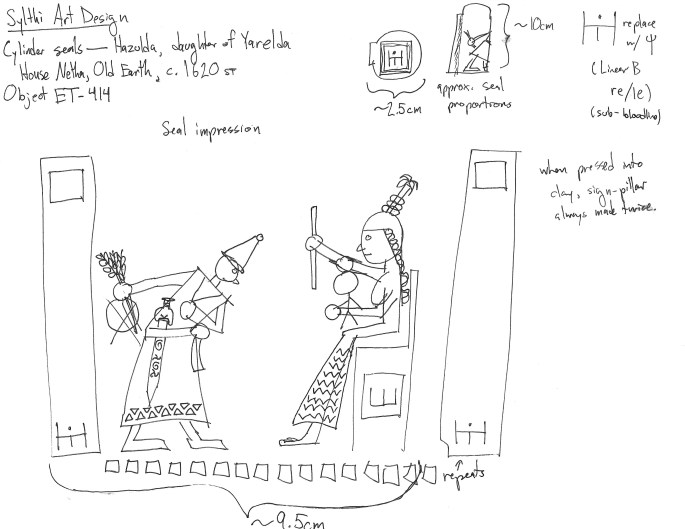 Sylthi Art Design
Cylinder seals — Hazolda, daughter of Yarelda
House Netha, Old Earth, c. 1620 ST
Object ET-414
~2.5cm
approx. seal
proportions
~10cm
replace
w/ Ψ
(Linear B
re/le)
(sub-bloodline)
Seal impression
when pressed into
clay, sign-pillar
always made twice.
↑
repeats
~9.5cm